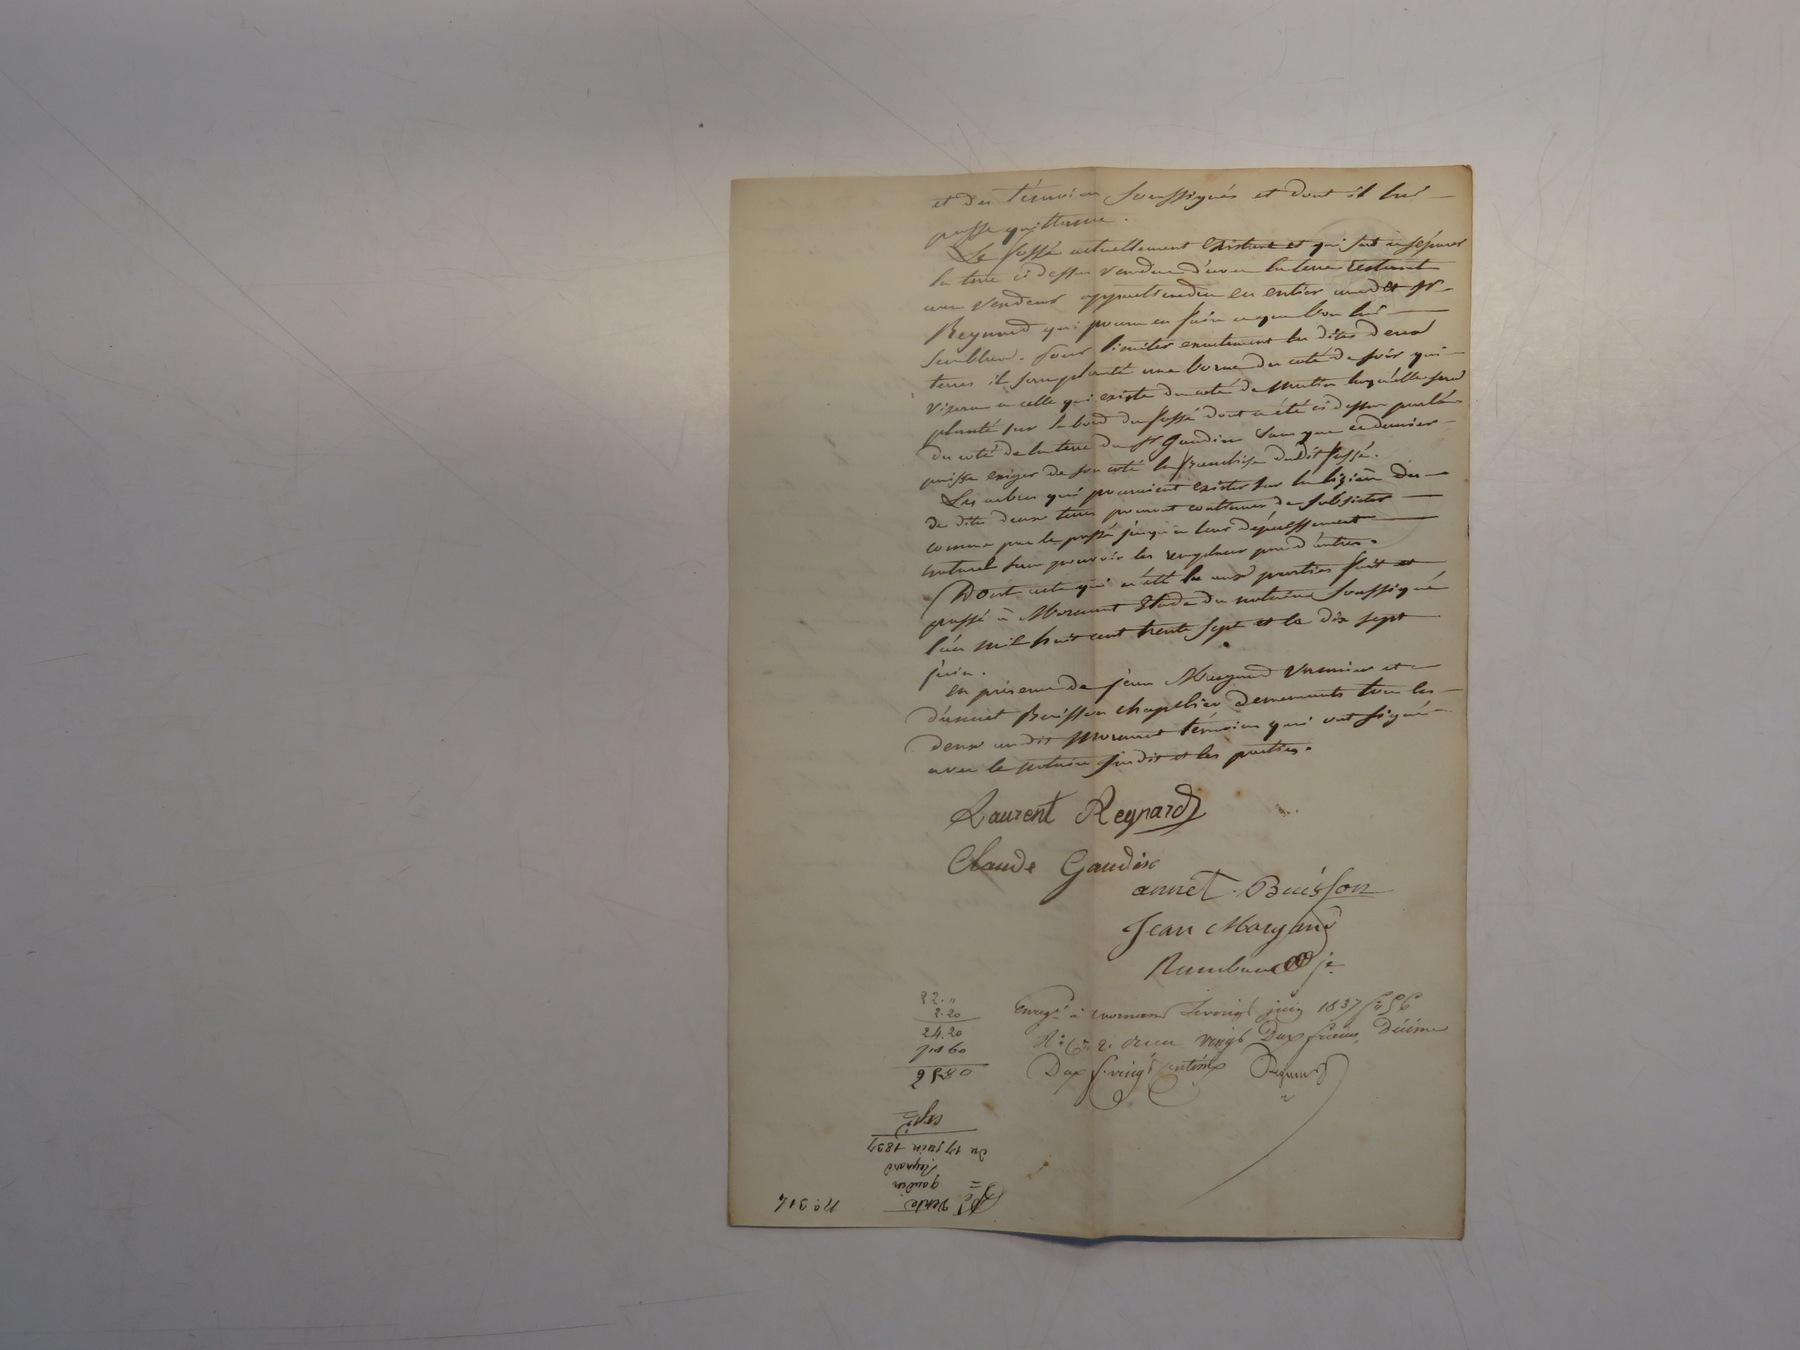 et des témoins soussignés et dont il lui
passe quittance.
Le fossé actuellement existant et qui sert à séparer
la terre ci dessus vendue d'avec la terre restant
au vendeur appartiendra en entier audit Sr
Reynard qui pourra en faire ce que bon lui
semblera. pour limiter exactement les dites deux
terres il sera planté une borne du coté de soir qui
visera a celle qui existe du coté de matin laquelle sera
planté sur le bord du fossé dont a été ci dessus parlé
du coté de la terre du Sr Gaudin sans que ce dernier
puisse exiger de son coté la franchise dudit fossé.
Les arbres qui pourraient exister sur la lizière des
de dites deux terres pourront continuer de subsister
comme par le passé jusqu'a leur dépérissement
naturel sans pouvoir les remplacer par d'autres.
Dont acte qui a été lu aux parties fait et
passé à Mornant Etude du notaire soussigné
l'an mil huit cent trente sept et le dix sept
juin.
En présence de jean Margand et
d'annet Buisson chapelier demeurants tous les
deux au dit Mornant témoins qui ont signé
avec le notaire susdit et les parties.
Laurent Reynard
Claude Gaudin
annet Buisson
Jean Margand
22. "
2.20
24.20
1.60
25.80
Enregé à mornant le vingt juin 1837 fo 56
vingt Deux francs, Décime
Deux f. vingt centimes
No. 314
Vente
gaudin
Reynard
du 17 juin 1837
expée